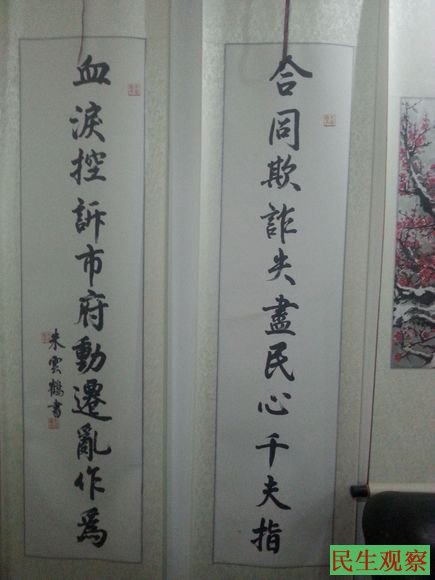 合同欺詐失盡民心千夫指
血淚控訴市府動遷亂作爲
朱雲鶴書
民生观察